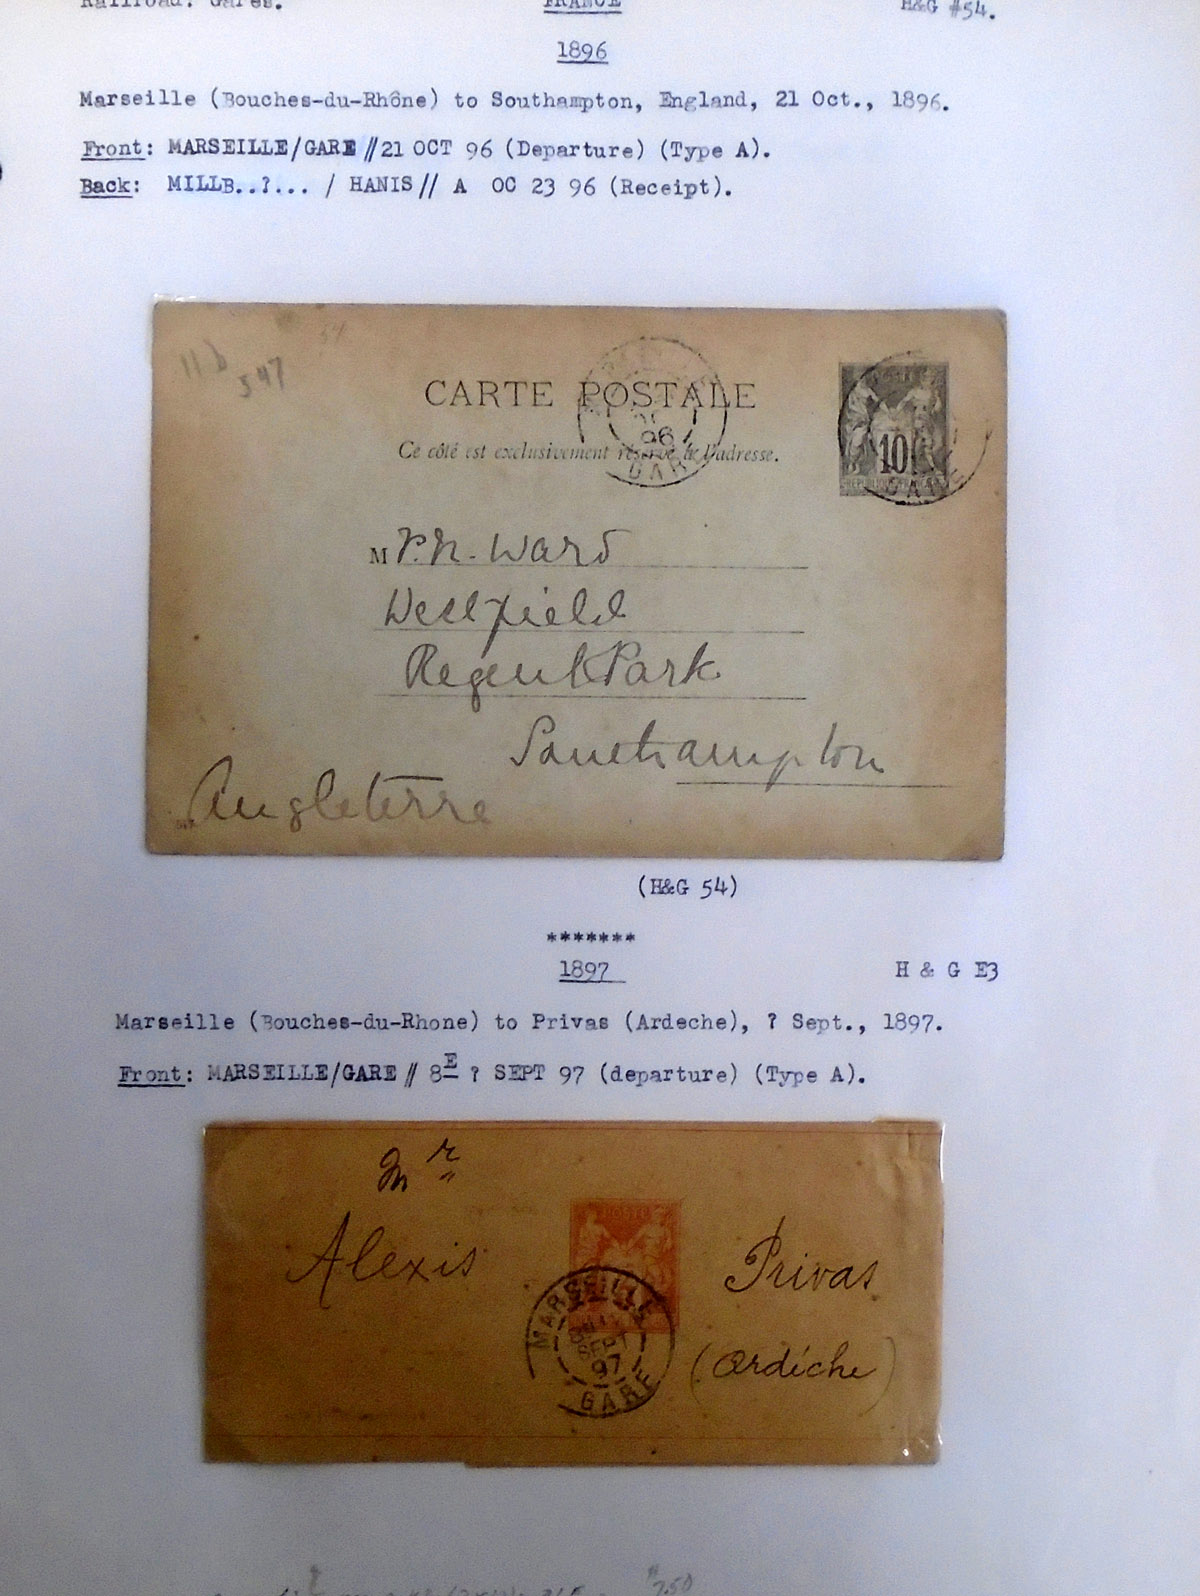 Railroad: Gares. FRANCE H&G #54.
1896
Marseille (Bouches-du-Rhône) to Southampton, England, 21 Oct., 1896.
Front: MARSEILLE/GARE // 21 OCT 96 (Departure) (Type A).
Back: MILLB..?... / HANIS // A OC 23 96 (Receipt).
54
11 b
547
CARTE POSTALE
Ce côté est exclusivement réservé à l'adresse.
96
GARE
10
REPUBLIQUE FRANCAISE
GARE
M r. n. Ward
Westfield
Regent Park
Southampton
Angleterre
(H&G 54)
*******
1897 H & G E3
Marseille (Bouches-du-Rhone) to Privas (Ardeche), ? Sept., 1897.
Front: MARSEILLE/GARE // 8E ? SEPT 97 (departure) (Type A).
Mr
Alexis
Privas
(Ardéche)
MARSEILLE
SEPT
97
GARE
$7.50